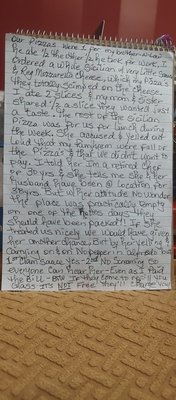 Our Pizzas were 1 for my brother in law
he ate 1/2 the other 1/2 he took for work. I
Ordered a White Sicilian w/ very Little Sauce
& Reg Mozzarella Cheese. Which the Pizza's
they totally skimped on the cheese.
I ate 2 slices my mom & sister
Shared 1/2 a slice they wanted just
a taste. The rest of the Sicilian
Pizza was for us for lunch during
the week. She accused & yelled out
Loud that my family were full of
the Pizza's & that we didn't want to
pay. I told her I'm a retired
of 30 yrs & she tells me she & her
Husband have been @ location for
10 yrs. But w/ the attitude No wonder
the place was practically empty
on one of the days they
should have been packed!! If she
treated us nicely we would have given
her another chance. But by her yelling &
carrying on & on No paper in
1st Clam Sauce Yes - 2nd No screaming so
everyone can hear her - Even as I paid
the Bill - BTW If they come to
Glass It's NOT Free they'll charge you